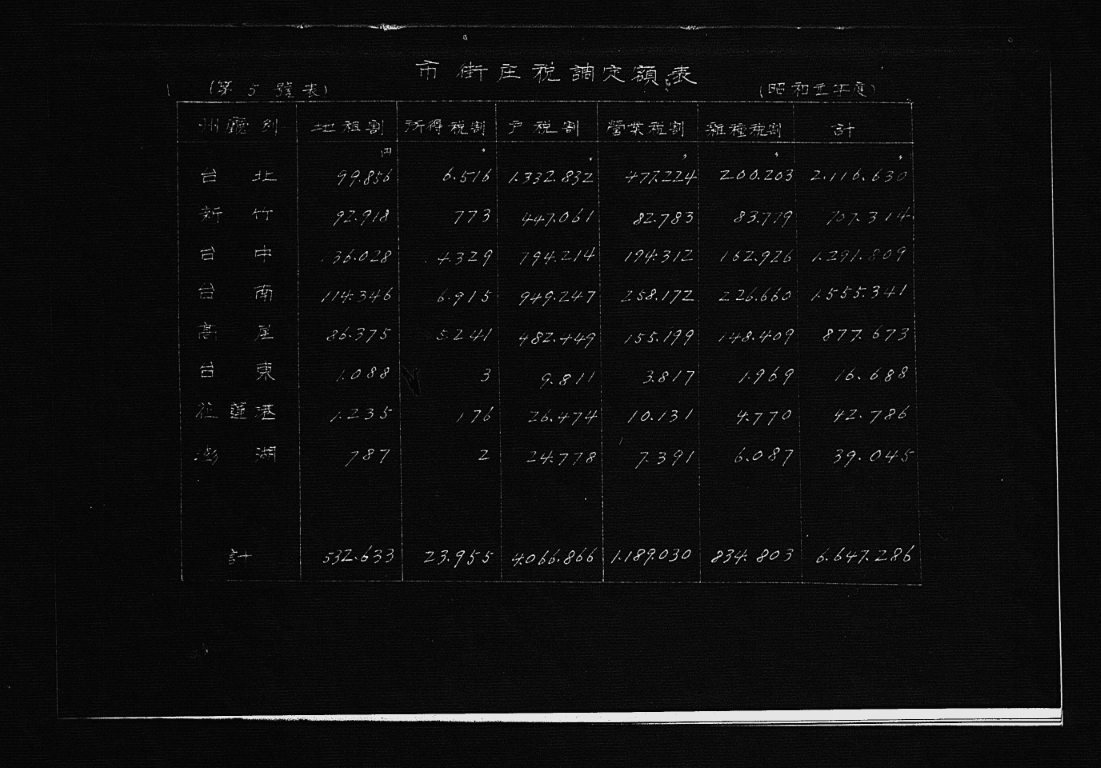 市街庄税調定額表
(第5號表) (昭和五年度)
州廳別 地租割 所得税割 戸税割 營業税割 雜種税割 計
円 , , , , ,
台北 99.856 6.516 1.332.832 477.224 200.203 2.116.630
新竹 92.918 773 447.061 82.783 83.779 707.314
台中 136.028 4.329 794.214 194.312 162.926 1.291.809
台南 114.346 6.915 949.247 258.172 226.660 1.555.341
高雄 86.375 5.241 482.449 155.199 148.409 877.673
台東 1.088 3 9.811 3.817 1.969 16.688
花蓮港 1.235 176 26.474 10.131 4.770 42.786
澎湖 787 2 24.778 7.391 6.087 39.045
計 532.633 23.955 4.066.866 1.189.030 834.803 6.647.286